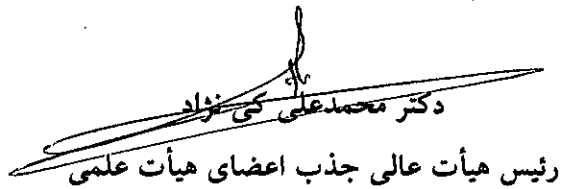 دکتر محمدعلی کی نژاد
رئیس هیأت عالی جذب اعضای هیأت علمی